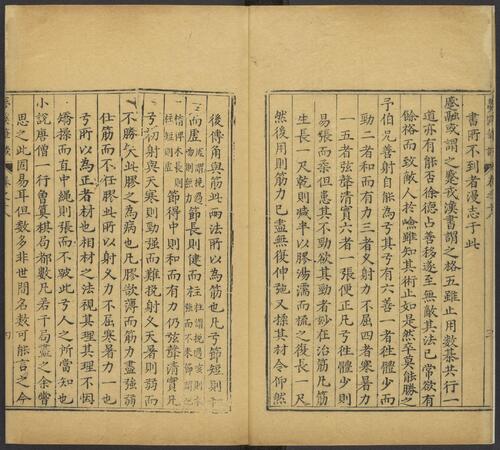 書所不到者漫志于此
蹙融或謂之蹙戎漢書謂之格五雖止用數棊共行一
道亦有能否徐德占善移遂至無敵其法已常欲有
餘裕而致敵人於嶮雖知其術止如是然卒莫能勝之
予伯兄善射自能為弓其弓有六善一者徃體少而
勁二者和而有力三者久射力不屈四者寒暑力
一五者弦聲清實六者一張便正凡弓徃體少則
易張而壽但患其不勁欲其勁者妙在治筋凡筋
生長一尺乾則減半以膠湯濡而梳之復長一尺
然後用則筋力已盡無復伸弛又揉其材令仰然
後傅角與筋此兩法所以為筋也凡弓節短則和
而虛虛謂挽過吻則無力節長則健而柱柱謂挽過吻則木強而不來節謂把
梢裨木長則柱短則虛節得中則和而有力仍弦聲清實凡
弓初射與天寒則勁強而難挽射久天暑則弱而
不勝矢此膠之為病也凡膠欲薄而筋力盡強弱
任筋而不任膠此所以射久力不屈寒暑力一也
弓所以為正者材也相材之法視其理其理不因
矯揉而直中繩則張而不跛此弓人之所當知也
小說唐僧一行曾算棊局都數凡若干局盡之余嘗
思之此固易耳但數多非世間名數可能言之今